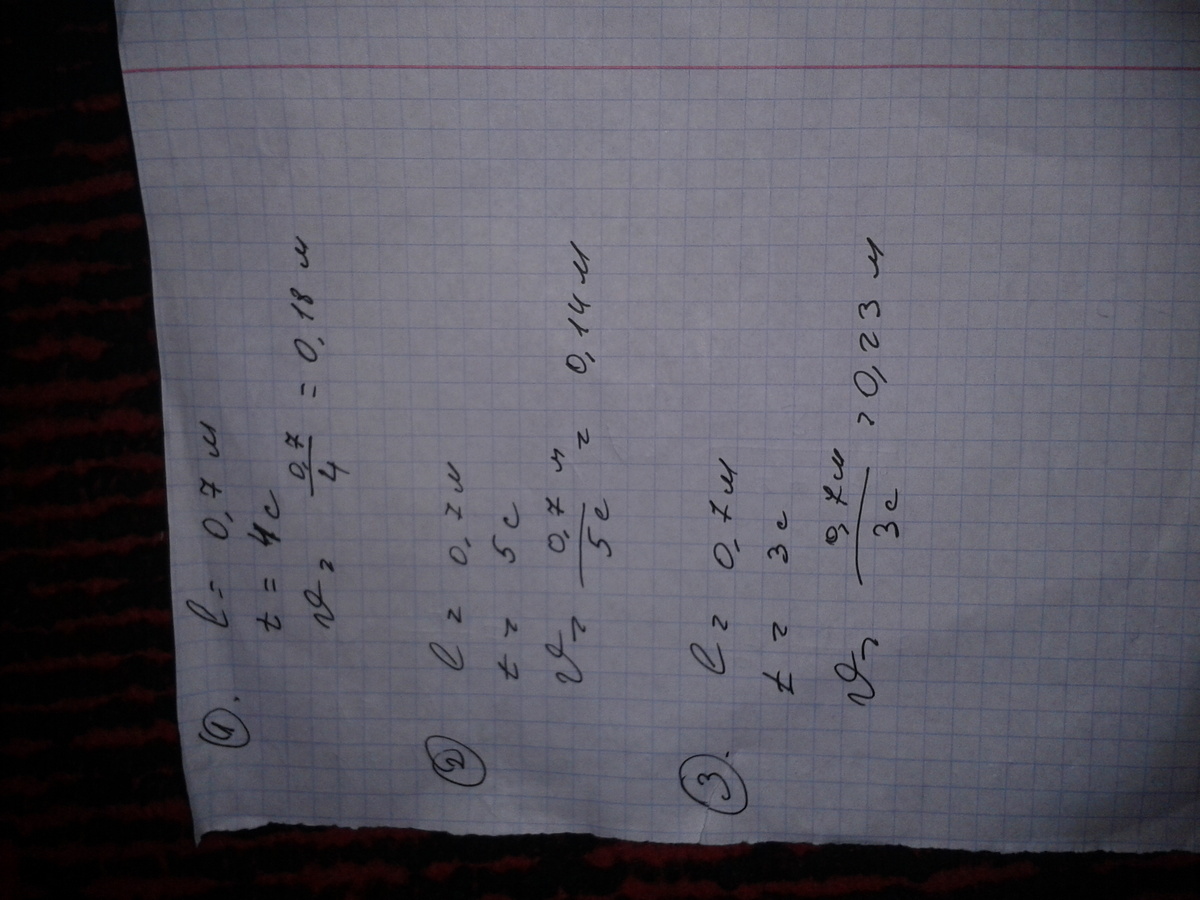 1.
l = 0,7 м
t = 4 с
v = 0,7/4 = 0,18 м
2
l = 0,7 м
t = 5 с
v = 0,7 м/5 с = 0,14 м
3.
l = 0,7 м
t = 3 с
v = 0,7 м/3 с = 0,23 м